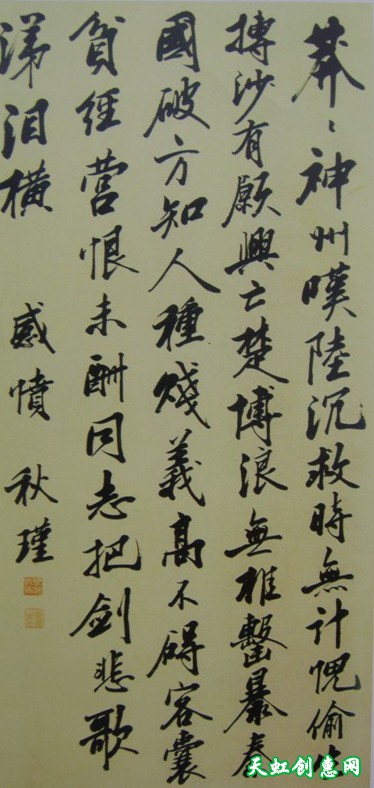 莽〻神州嘆陸沉救時無計愧偷生
摶沙有願興亡楚博浪無椎擊暴秦
國破方知人種賤義高不碍客囊
貧經營恨未酬同志把劍悲歌
涕泪橫
感憤 秋瑾
天虹创意网